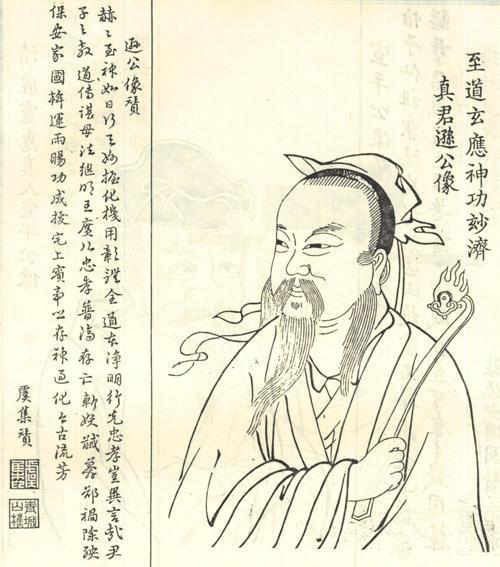 至道玄應神功妙濟
真君遜公像
遜公像贊
赫〻至神如日行天握化機用彰證全道在淨明行先忠孝豈異言哉
子之教道傳諶母法継明王度以忠孝普濟存亡斬妖馘孽卻禍除殃
保安家國斡運雨暘功成拔宅上賓帝存神過化古流芳
虞集贊
青城山樵